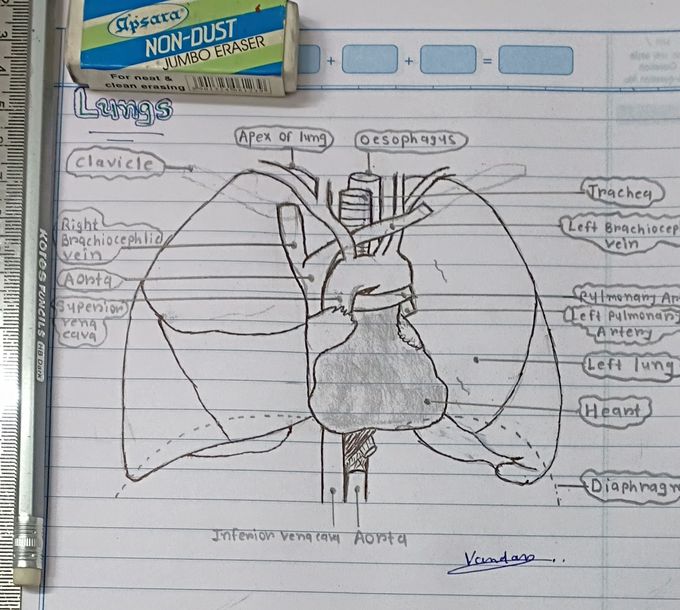 Apsara
NON-DUST
JUMBO ERASER
For neat &
clean erasing
+ + =
Lungs
Apex of lung
Oesophagus
Clavicle
Trachea
Right
Brachiocephlic
vein
Left Brachiocep
vein
Aorta
Superior
vena
cava
Pulmonary Ar
Left Pulmonary
Artery
Left lung
Heart
Diaphragm
Inferior vena cava
Aorta
Vandan..
KOTOS PENCILS